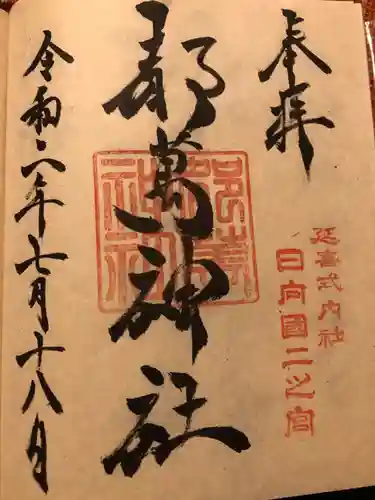 奉拝
延喜式内社
日向國二之宮
都萬神社
令和二年七月十八月